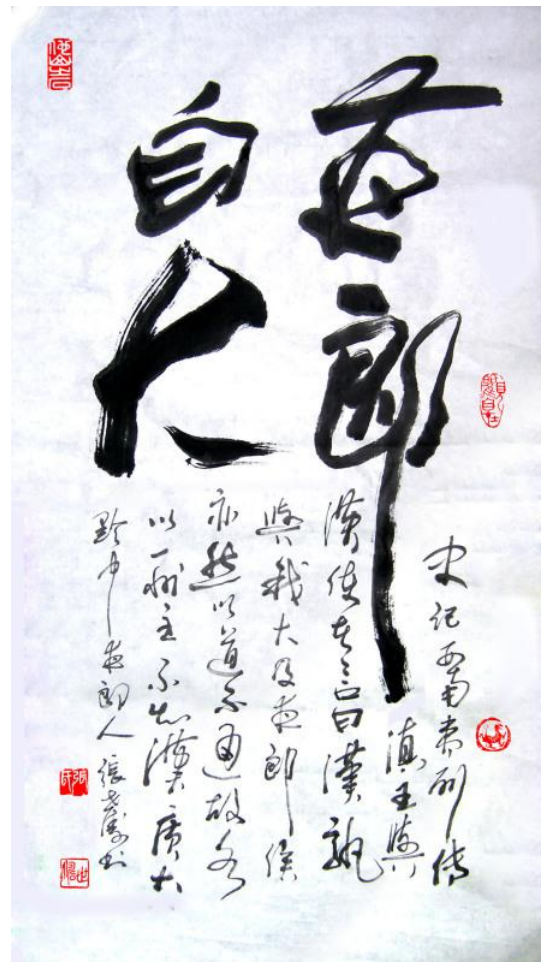 夜郎
自大
史記西南夷列傳
滇王與
漢使者言曰漢孰
與我大及夜郎侯
亦然以道不通故各
以一州主不知漢廣大
黔中夜郎人張書